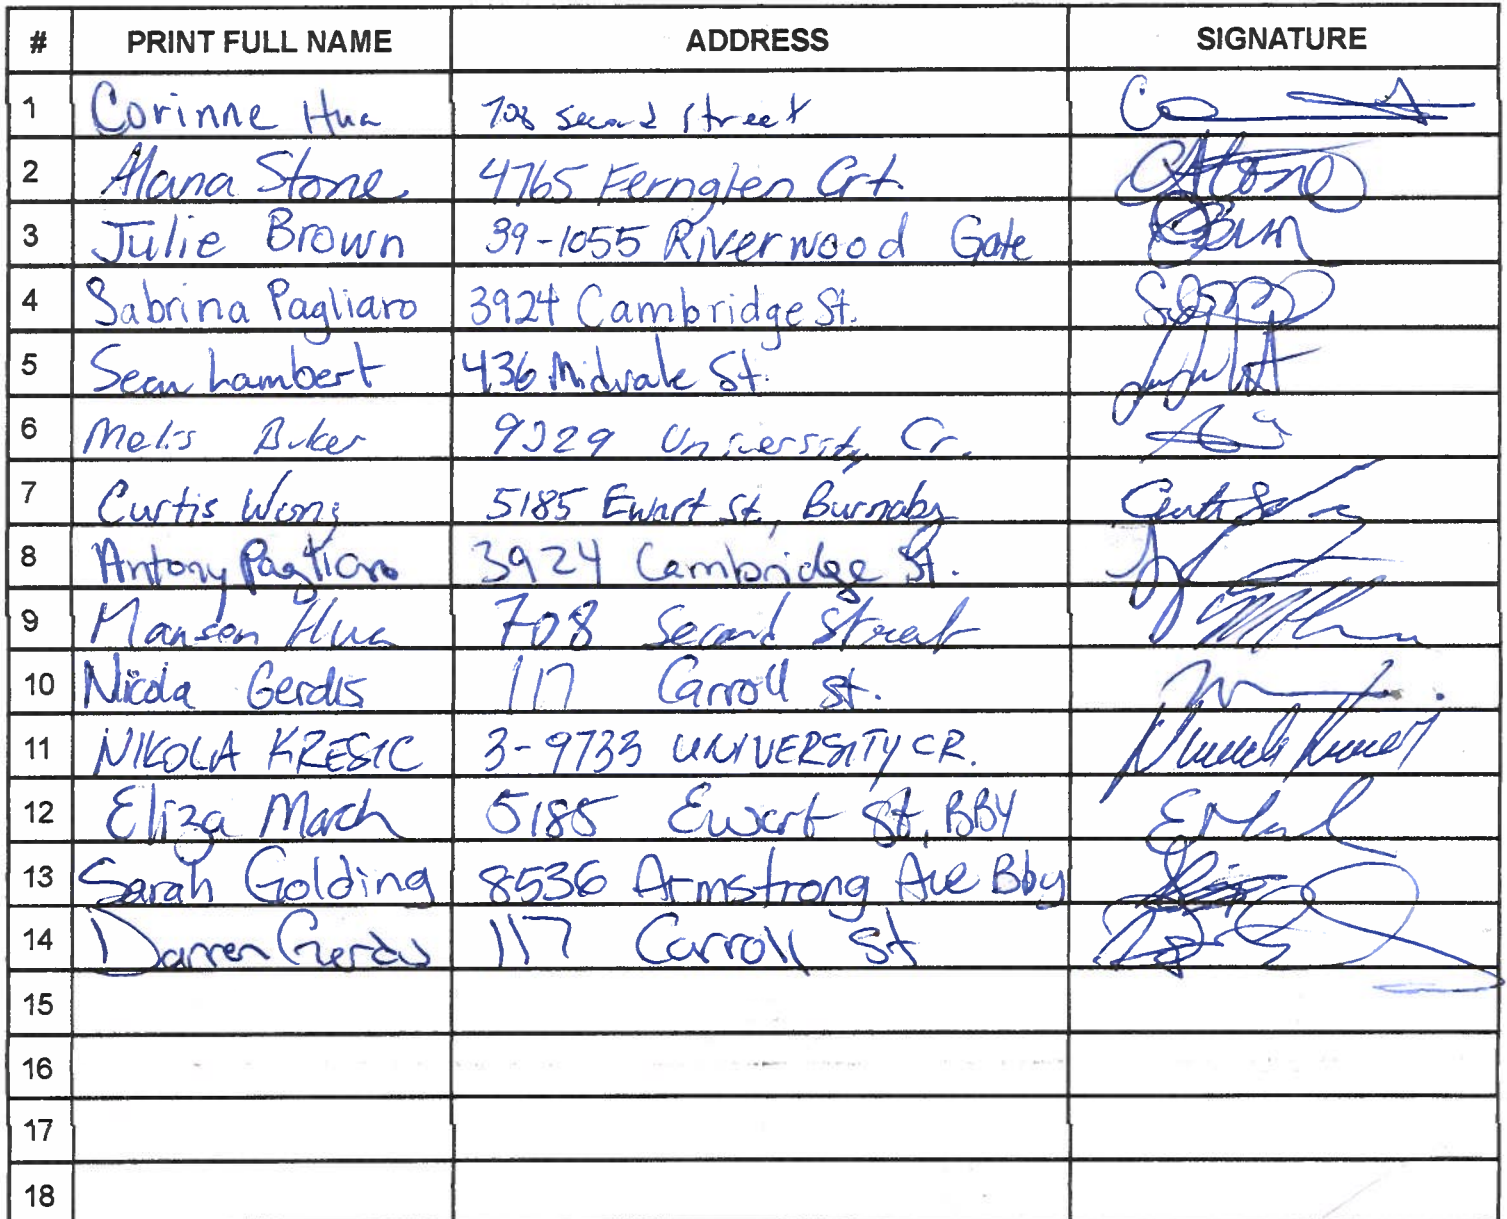 # PRINT FULL NAME ADDRESS SIGNATURE
1 Corinne Hua 708 Second Street
2 Alana Stone 4765 Fernglen Crt.
3 Julie Brown 39-1055 Riverwood Gate
4 Sabrina Pagliaro 3924 Cambridge St.
5 Sean Lambert 436 Midvale St.
6 9329 University Cr.
7 Curtis Wong 5185 Ewart St., Burnaby
8 Antony Pagliaro 3924 Cambridge St.
9 Manson Hua 708 Second Street
10 Nicola Gerdis 117 Carroll St.
11 NIKOLA KRESIC 3-9733 UNIVERSITY CR.
12 Eliza March 5185 Ewart St, BBY
13 Sarah Golding 8536 Armstrong Ave Bby
14 Darren Gerdis 117 Carroll St
15
16
17
18